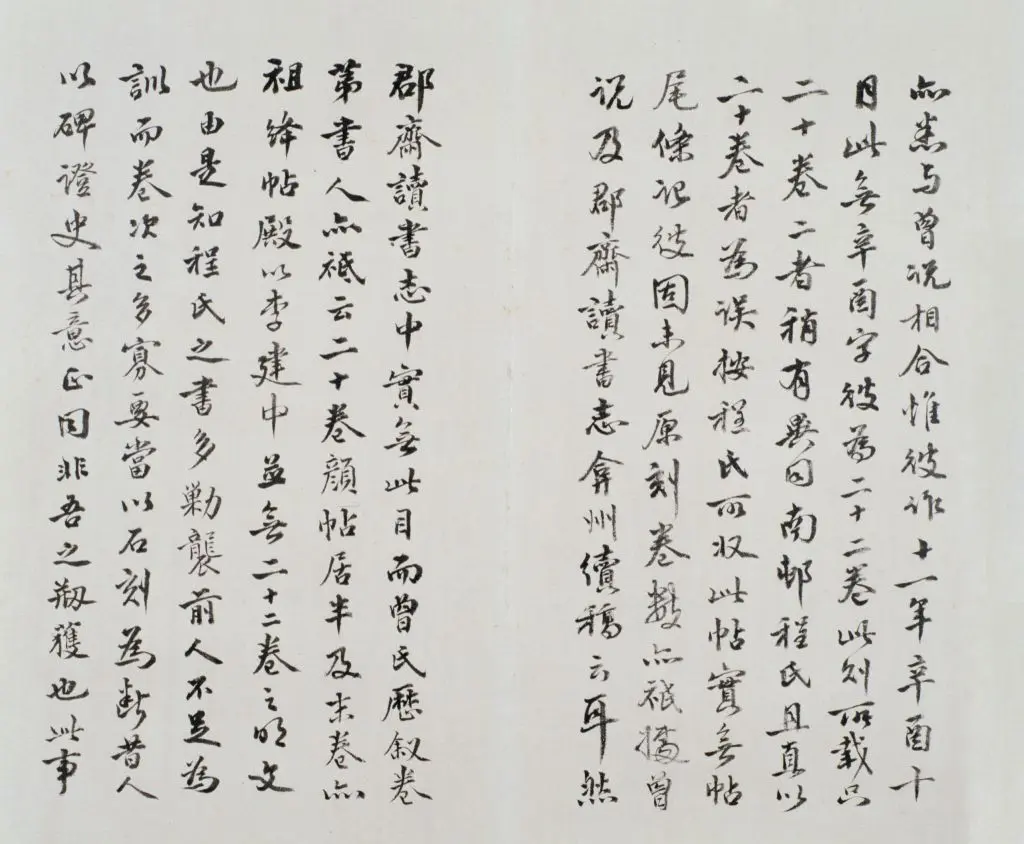 亦悉与曾说相合惟彼作十一年辛酉十
月此無辛酉字彼為二十二卷此刻所載只
二十卷二者稍有異同南邨程氏且直以
二十卷者為误按程氏所收此帖實無帖
尾條记彼固未見原刻卷數亦祇據曾
说及郡齋讀書志弇州續稿云耳然
郡齋讀書志中實無此目而曾氏歷叙卷
第書人亦祇云二十卷顔帖居半及末卷亦
祖绛帖殿以李建中並無二十二卷之明文
也由是知程氏之書多勦襲前人不足為
訓而卷次之多寡要當以石刻為断昔人
以碑證史其意正同非吾之剏獲也此事